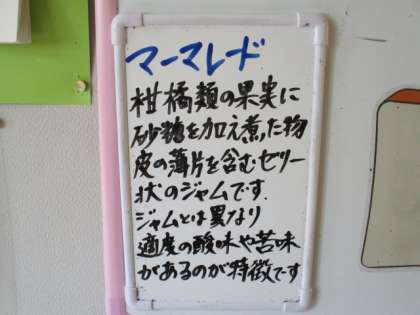 マーマレード
柑橘類の果実に
砂糖を加え煮った物
皮の薄片を含むゼリー
状のジャムです.
ジャムとは異なり
適度の酸味や苦味
があるのが特徴です